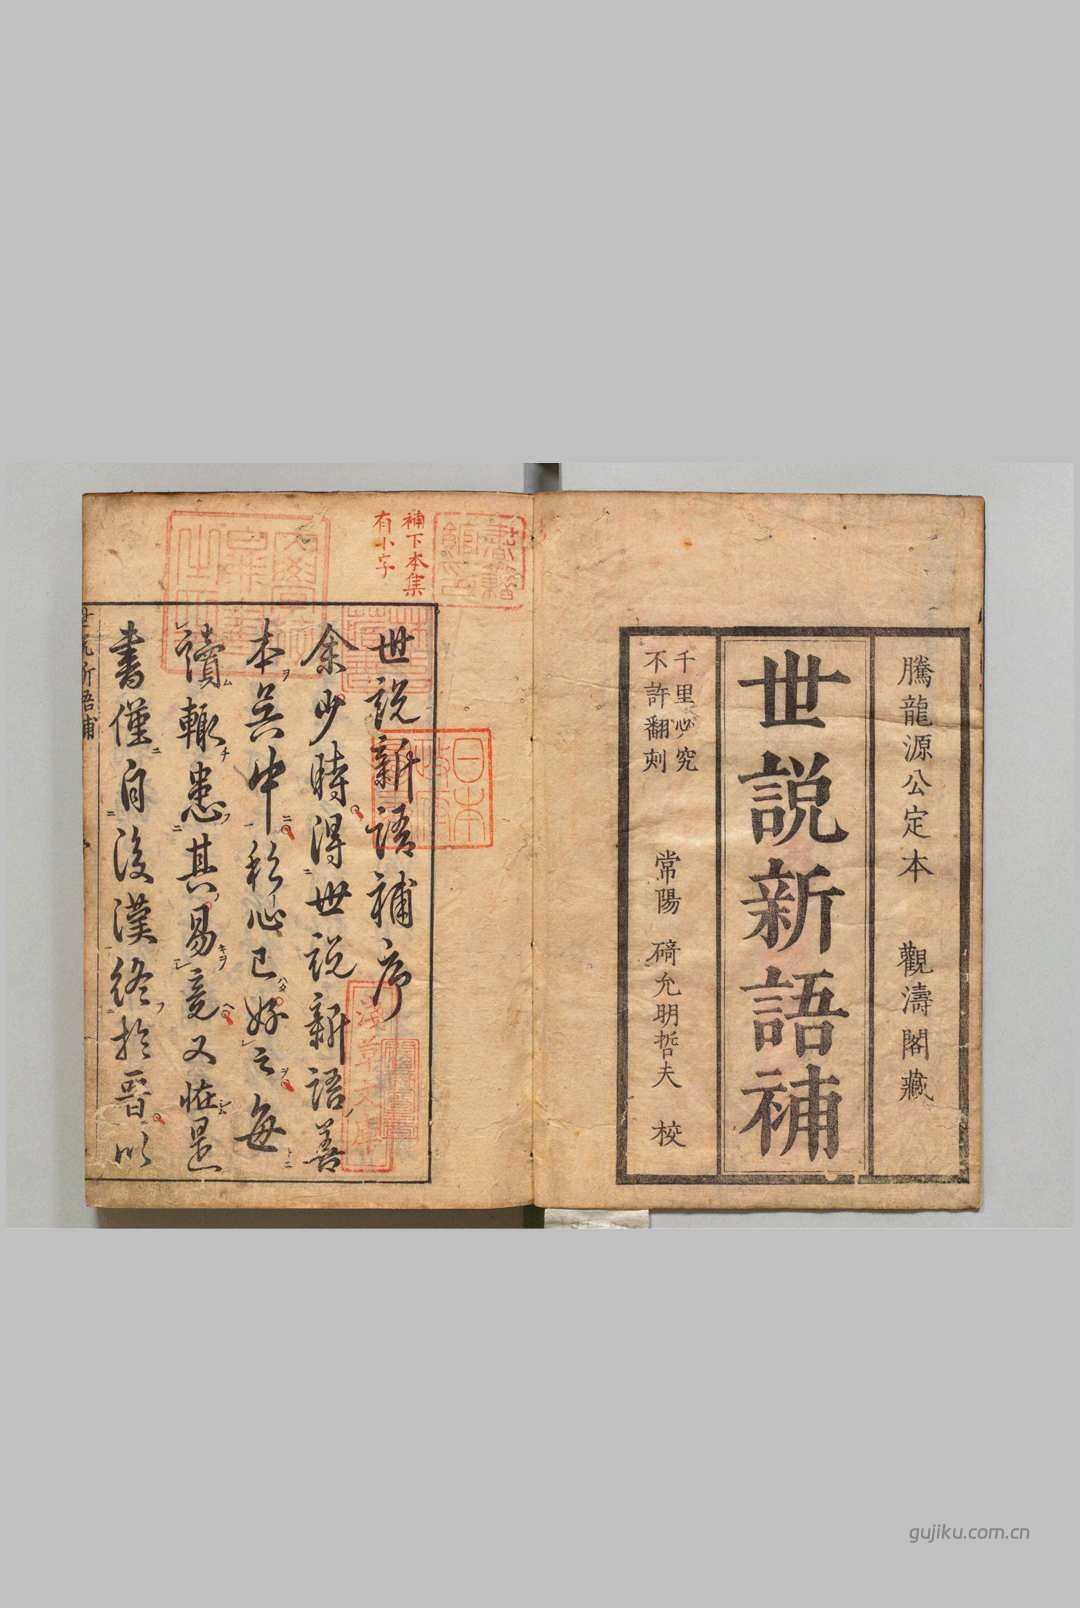 騰龍源公定本 觀濤閣藏
世説新語補
千里必究
不許翻刻
常陽 碕允明哲夫 校
補下本集
有小字
世説新語補序
余少時得世説新語善
本吳中私心已好之每
讀輙患其易竟又怪是
書僅自後漢終於晉以
世説新語補
日本
淺草文庫
gujiku.com.cn